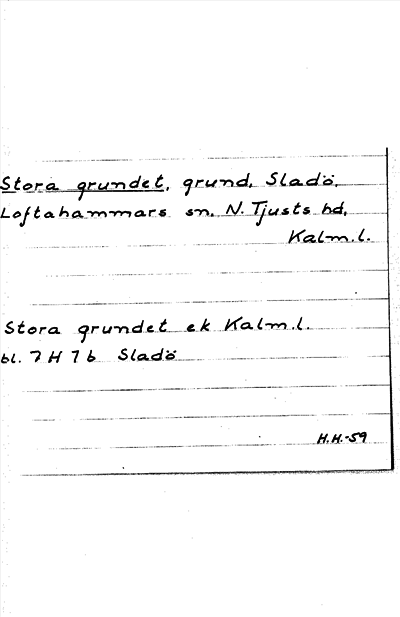 Stora grundet, grund, Sladö,
Loftahammars sn, N. Tjusts hd,
Kalm.l.
Stora grundet ek Kalm.l.
bl. 7 H 7 b Sladö
H.H.-59